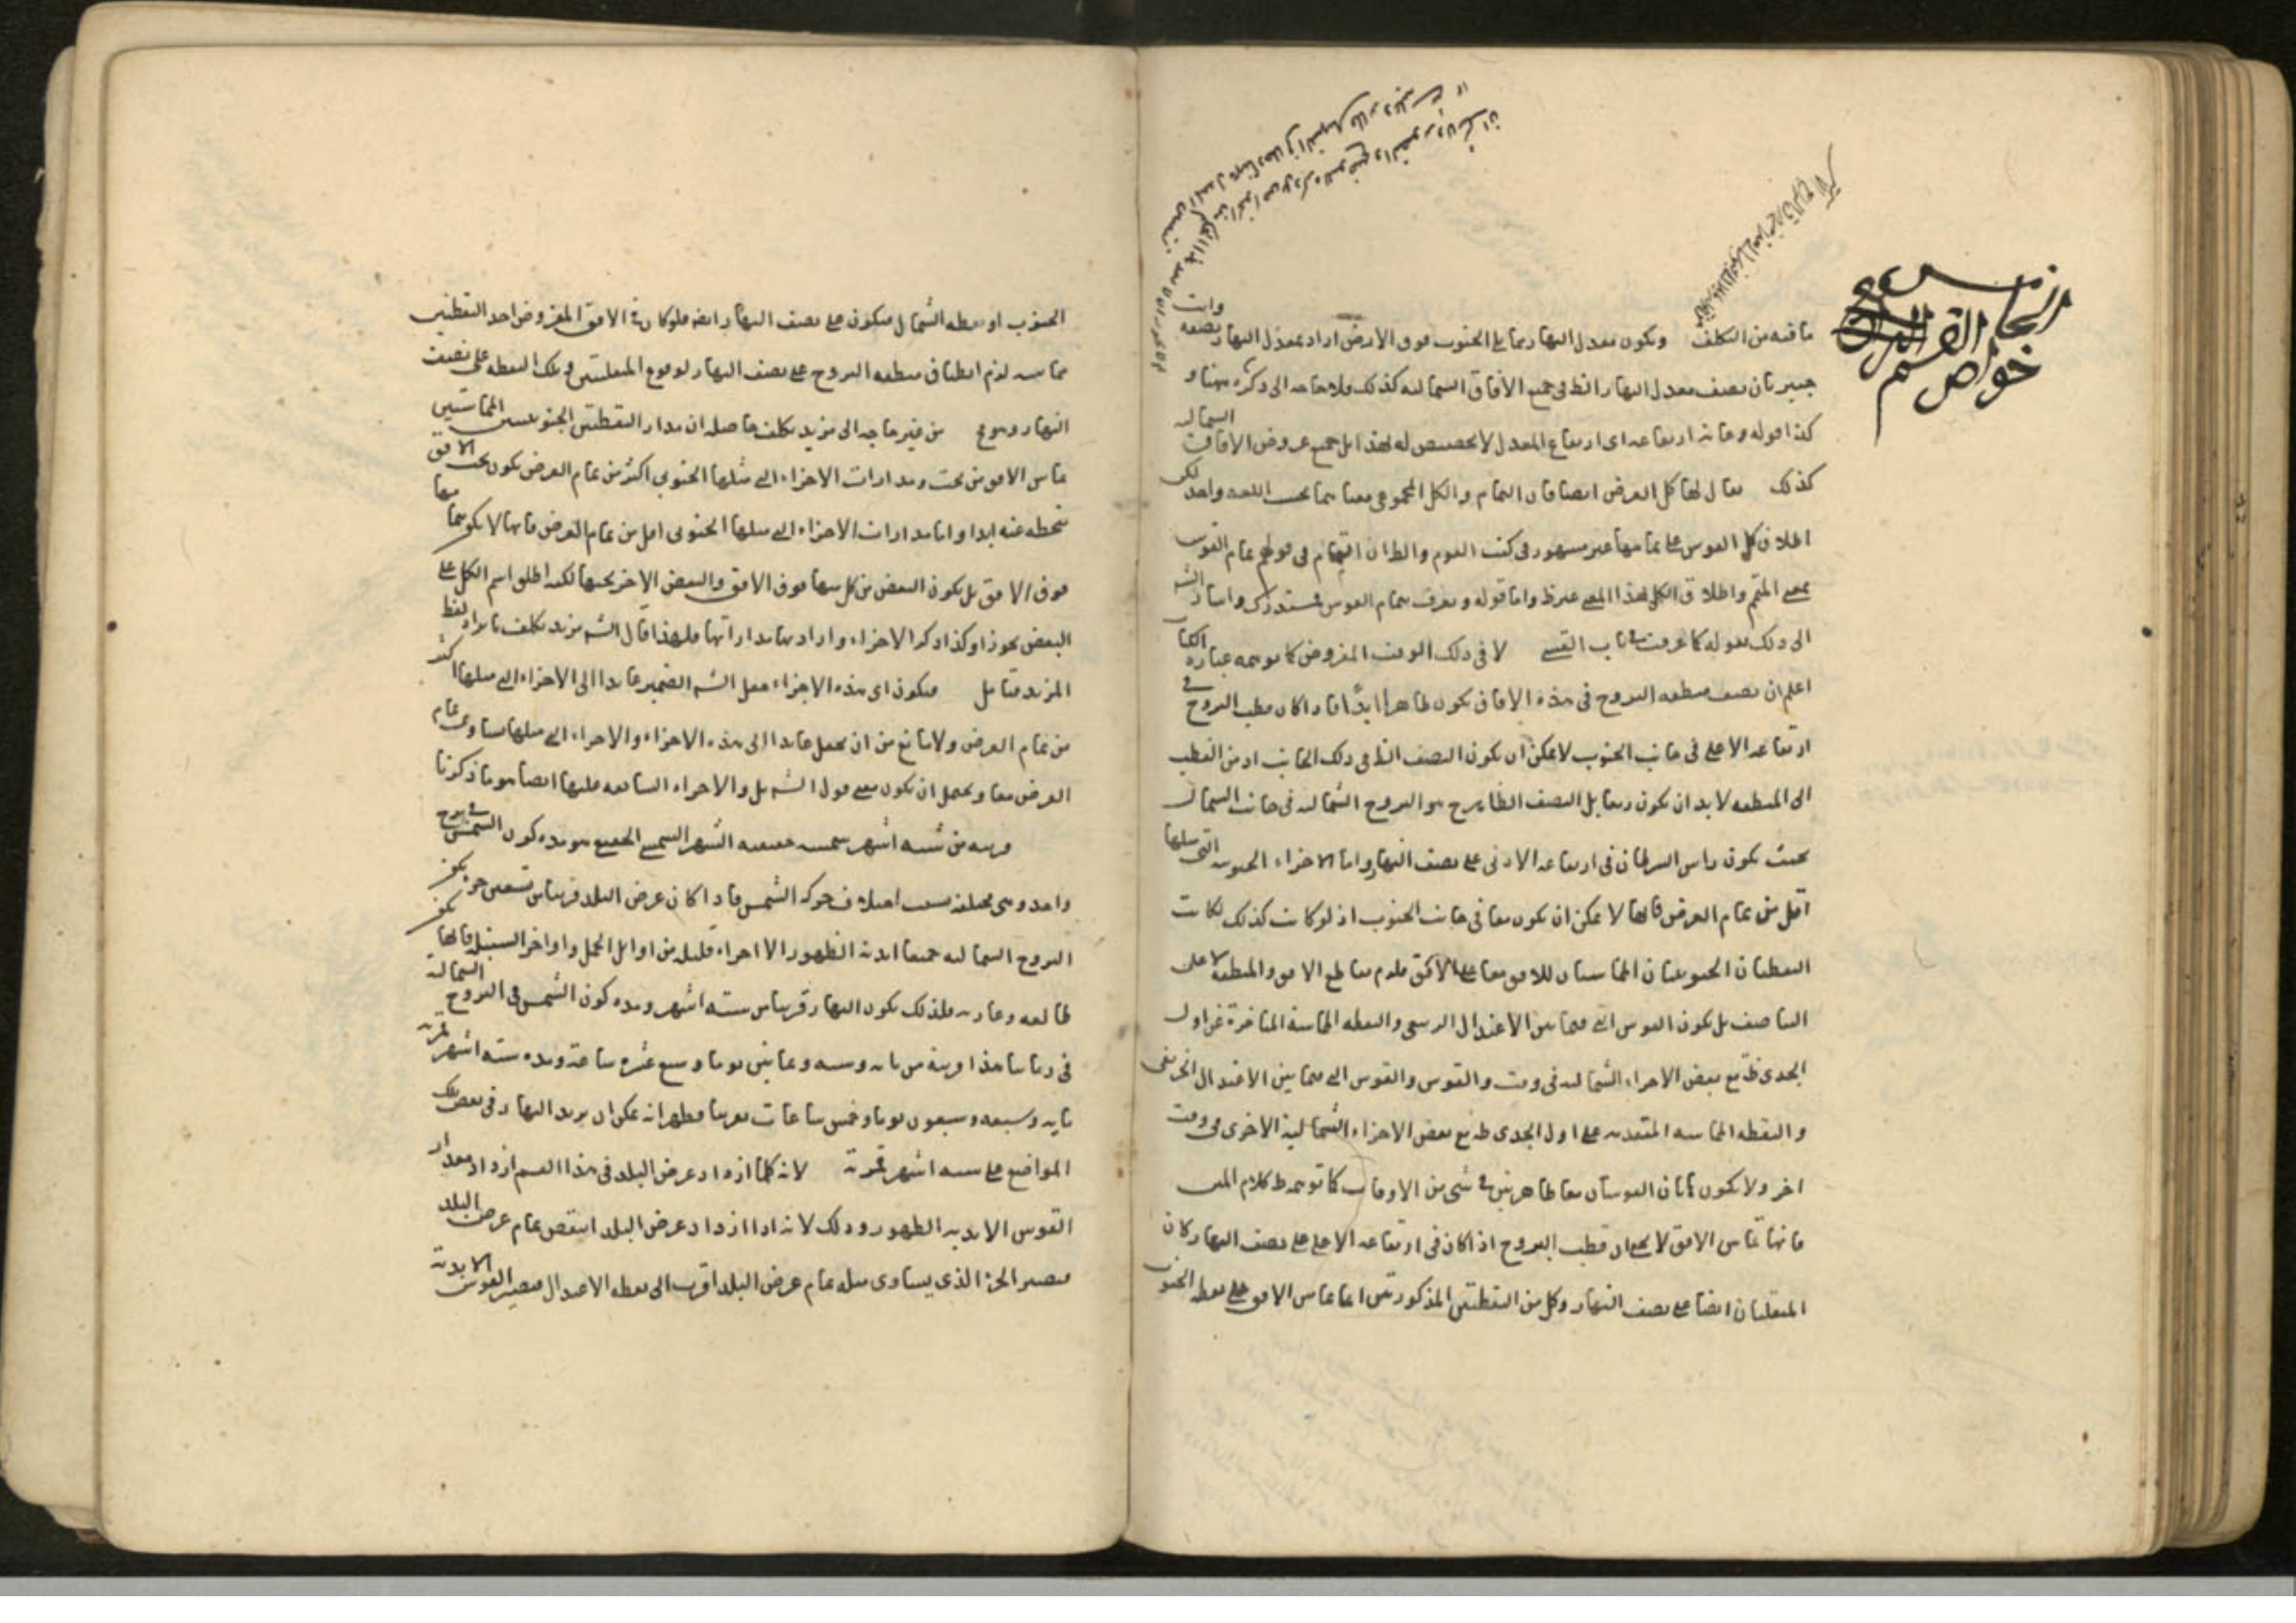 خواص القسم الخامس
ما فيه من التكلف ويكون معدل النهار مما يلي الجنوب فوق الارض اراد بمعدل النهار نصفه وانت
خبير بان نصف معدل النهار الظ في جميع الافاق الشماليه كذلك فلا حاجه الى ذكره ههنا و
كذا قوله وغايه ارتفاعه اى ارتفاع المعدل لا تخصيص له بهذا بل جميع عروض الافاق الشماليه
كذلك يقال لها كل العرض ايضا فان التمام والكل المجموعى معناهما بحسب اللغه واحد لكن
اطلاق كل القوس على تمامها غير مشهور فى كتب القوم والظ ان التمام فى قولهم تمام القوس
بمعنى المتمم واطلاق الكل بهذا المعنى غير ظ واما قوله ويعرف بتمام القوس فمستدرك واشار الشه
الى ذلك بقوله كما عرفت فى باب القسى لا فى ذلك الوقت المفروض كما توهمه عباره الكتاب
اعلم ان نصف منطقه البروج فى هذه الافاق يكون ظاهرا ابدا فاذا كان قطب البروج فى
ارتفاعه الاعلى فى جانب الجنوب لا يمكن ان يكون النصف الظ فى ذلك الجانب اذ من القطب
الى المنطقه لا بد ان يكون ربعا بل النصف الظاهر ح هو البروج الشماليه فى جانب الشمال
بحيث يكون راس السرطان فى ارتفاعه الادنى على نصف النهار واما الاجزاء الجنوبيه التى ميلها
اقل من تمام العرض فانها لا يمكن ان يكون معا فى جانب الجنوب اذ لو كانت كذلك لكانت
النقطتان الجنوبيتان المماستان للافق معا على الافق فلزم تقاطع الافق والمنطقه لا على
التناصف بل يكون القوس التى فيما بين الاعتدال الربيعى والنقطه المماسة المتاخرة عن اول
الجدى ظ مع بعض الاجزاء الشماليه فى وقت والقوس والقوس التى فيما بين الاعتدال الخريفى
والنقطه المماسه المتقدمه على اول الجدى ظ مع بعض الاجزاء الشمالية الاخرى فى وقت
اخر ولا يكون هاتان القوسان معا ظاهرتين فى شى من الاوقات كما توهمه ظ كلام المص
فانها تماس الافق لا يخفى ان قطب البروج اذا كان فى ارتفاعه الاعلى على نصف النهار كان
المنقلبان ايضا على نصف النهار وكل من النقطتين المذكورتين انما تماس الافق على نقطه الجنوب
الجنوب او نقطه الشمال فيكون على نصف النهار ايضه فلو كان فى الافق المفروض احد النقطتين
مماسه لزم انطباق منطقه البروج على نصف النهار لوقوع المنقلبين وتلك النقطه على نصف
النهار وهو مح من غير حاجه الى مزيد تكلف حاصله ان مدار النقطتين الجنوبيتين المماستين
تماس الافق من تحت ومدارات الاجزاء التى ميلها الجنوبى اكثر من تمام العرض يكون تحت الافق
منحطه عنه ابدا واما مدارات الاجزاء التى ميلها الجنوبى اقل من تمام العرض فانها لا يكون بتمامها
فوق الافق بل يكون البعض من كل منها فوق الافق والبعض الاخر تحتها لكنه اطلق اسم الكل على
البعض تجوزا وكذا ذكر الاجزاء واراد بها مداراتها فلهذا قال الشه مزيد تكلف بايراد لفظ
المزيد فتامل فيكون اى هذه الاجزاء جعل الشه الضمير عايدا الى الاجزاء التى ميلها اكثر
من تمام العرض ولا مانع من ان يجعل عايدا الى هذه الاجزاء والاجزاء التى ميلها يساوى تمام
العرض معا ويحتمل ان يكون معنى قول الشه بل والاجزاء السابعه عليها ايضا هو ما ذكرنا
قريبه من سته اشهر شمسيه حقيقيه الشهر الشمسى الحقيقى هو مده كون الشمس فى برج
واحد وهى مختلفه بسبب اختلاف حركه الشمس فاذا كان عرض البلد قريبا من تسعين جزءا يكون
البروج الشماليه جميعا ابديه الظهور الا اجزاء قليله من اوايل الحمل واواخر السنبله فانها يكون
طالعه وغاربه فلذلك يكون النهار قريبا من سته اشهر ومده كون الشمس فى البروج الشمالية
فى زماننا هذا قريبة من مايه وسته وثمانين يوما وسبع عشره ساعة ومده سته اشهر قمريه
مايه وسبعه وسبعون يوما وخمس ساعات تقريبا فظهر انه يمكن ان يزيد النهار فى بعض تلك
المواضع على سته اشهر قمريه لانه كلما ازداد عرض البلد فى هذا القسم ازداد مقدار
القوس الابديه الظهور وذلك لانه اذا ازداد عرض البلد انتقص تمام عرض البلد
فيصير الجزء الذى يساوى ميله تمام عرض البلد اقرب الى نقطه الاعتدال فيصير القوس الابدية